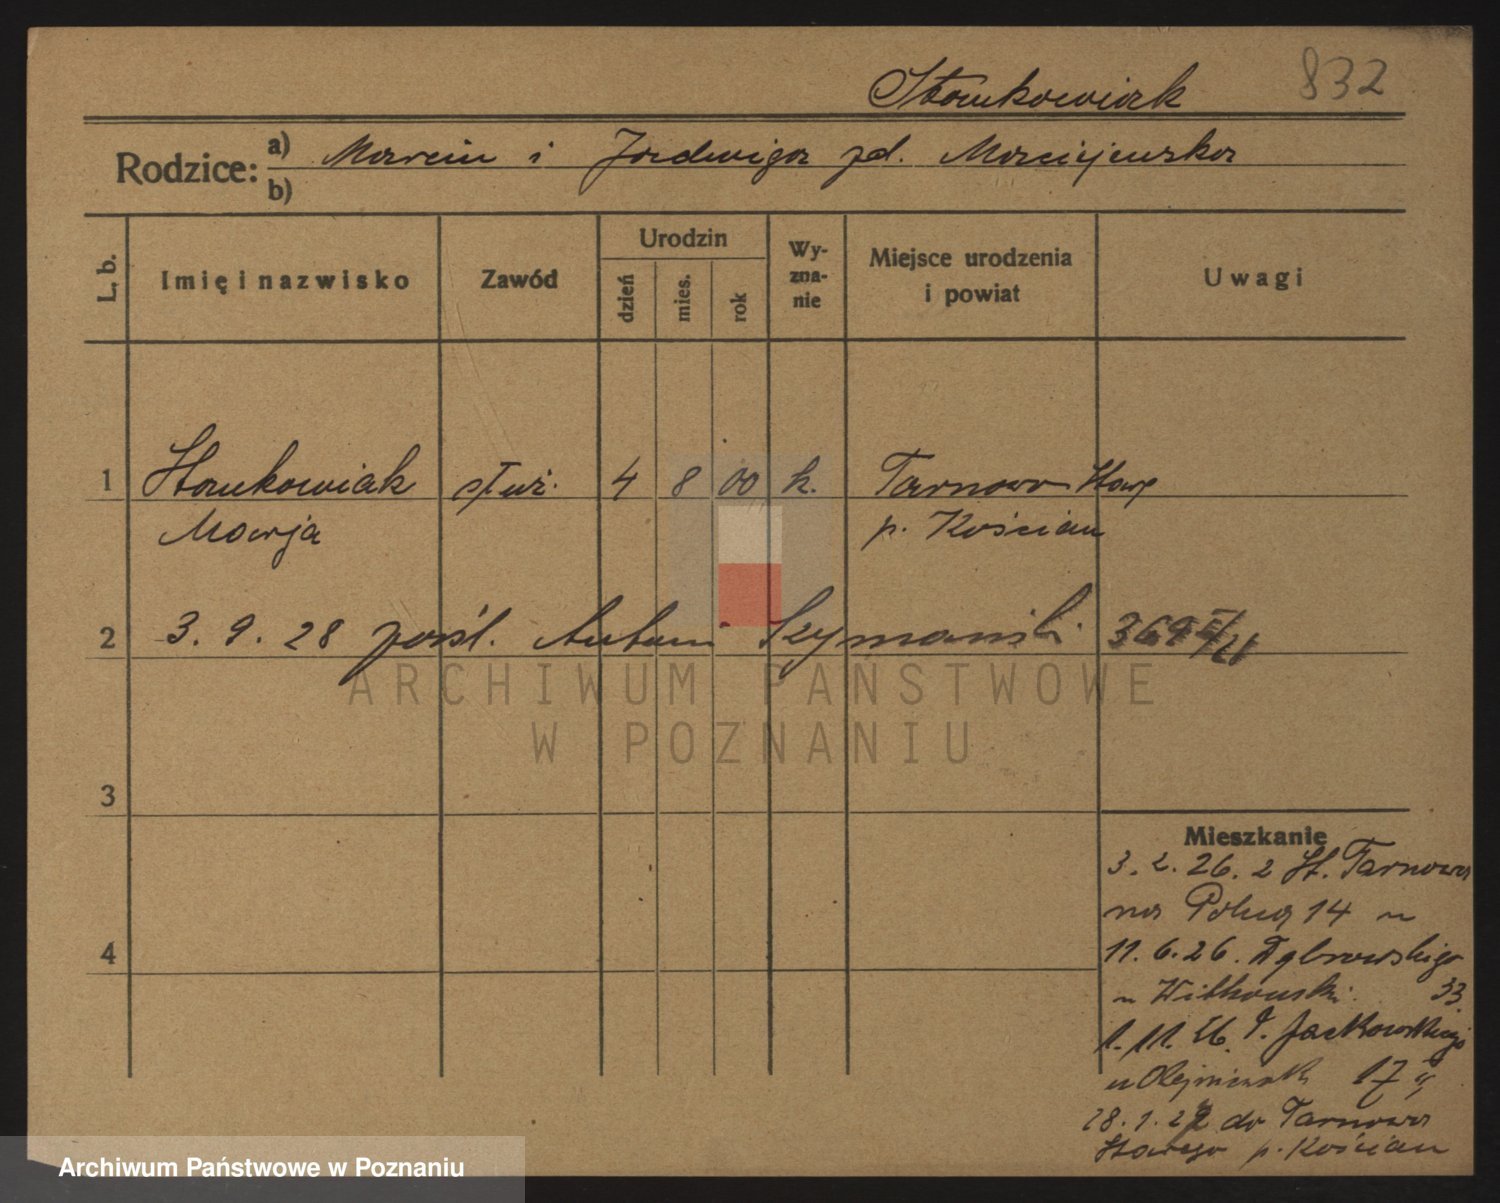 832
Stankowiak
Rodzice:
a) Marcin i Jadwiga zd. Maciejewska
b)
L. b.
Imię i nazwisko
Zawód
Urodzin
dzień
mies.
rok
Wy-
zna-
nie
Miejsce urodzenia
i powiat
Uwagi
1 Stankowiak służ. 4 8 00 k. Tarnowo Star
Marja p. Kościan
2 3. 9. 28 pośl. Antoni Szymański
3
4
Mieszkanie
3. 2. 26. z St. Tarnowa
na Polną 14 u
11. 6. 26. Dąbrowskiego
u Witkowski. 33
1. 11. 26. Jackowskiego
u Olejniczak 17
do Tarnowa
Starego p. Kościan
ARCHIWUM PAŃSTWOWE
W POZNANIU
Archiwum Państwowe w Poznaniu